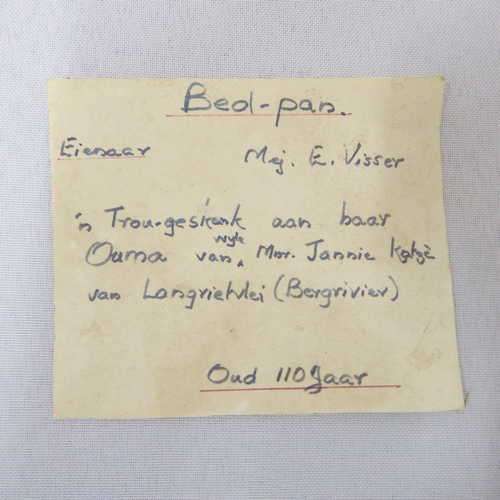 Bed-pan.
Eienaar Mej. E. Visser
'n Trou-geskenk aan haar
Ouma van wyle Mnr. Jannie Kotzè
van Langrietvlei (Bergrivier)
Oud 110 Jaar